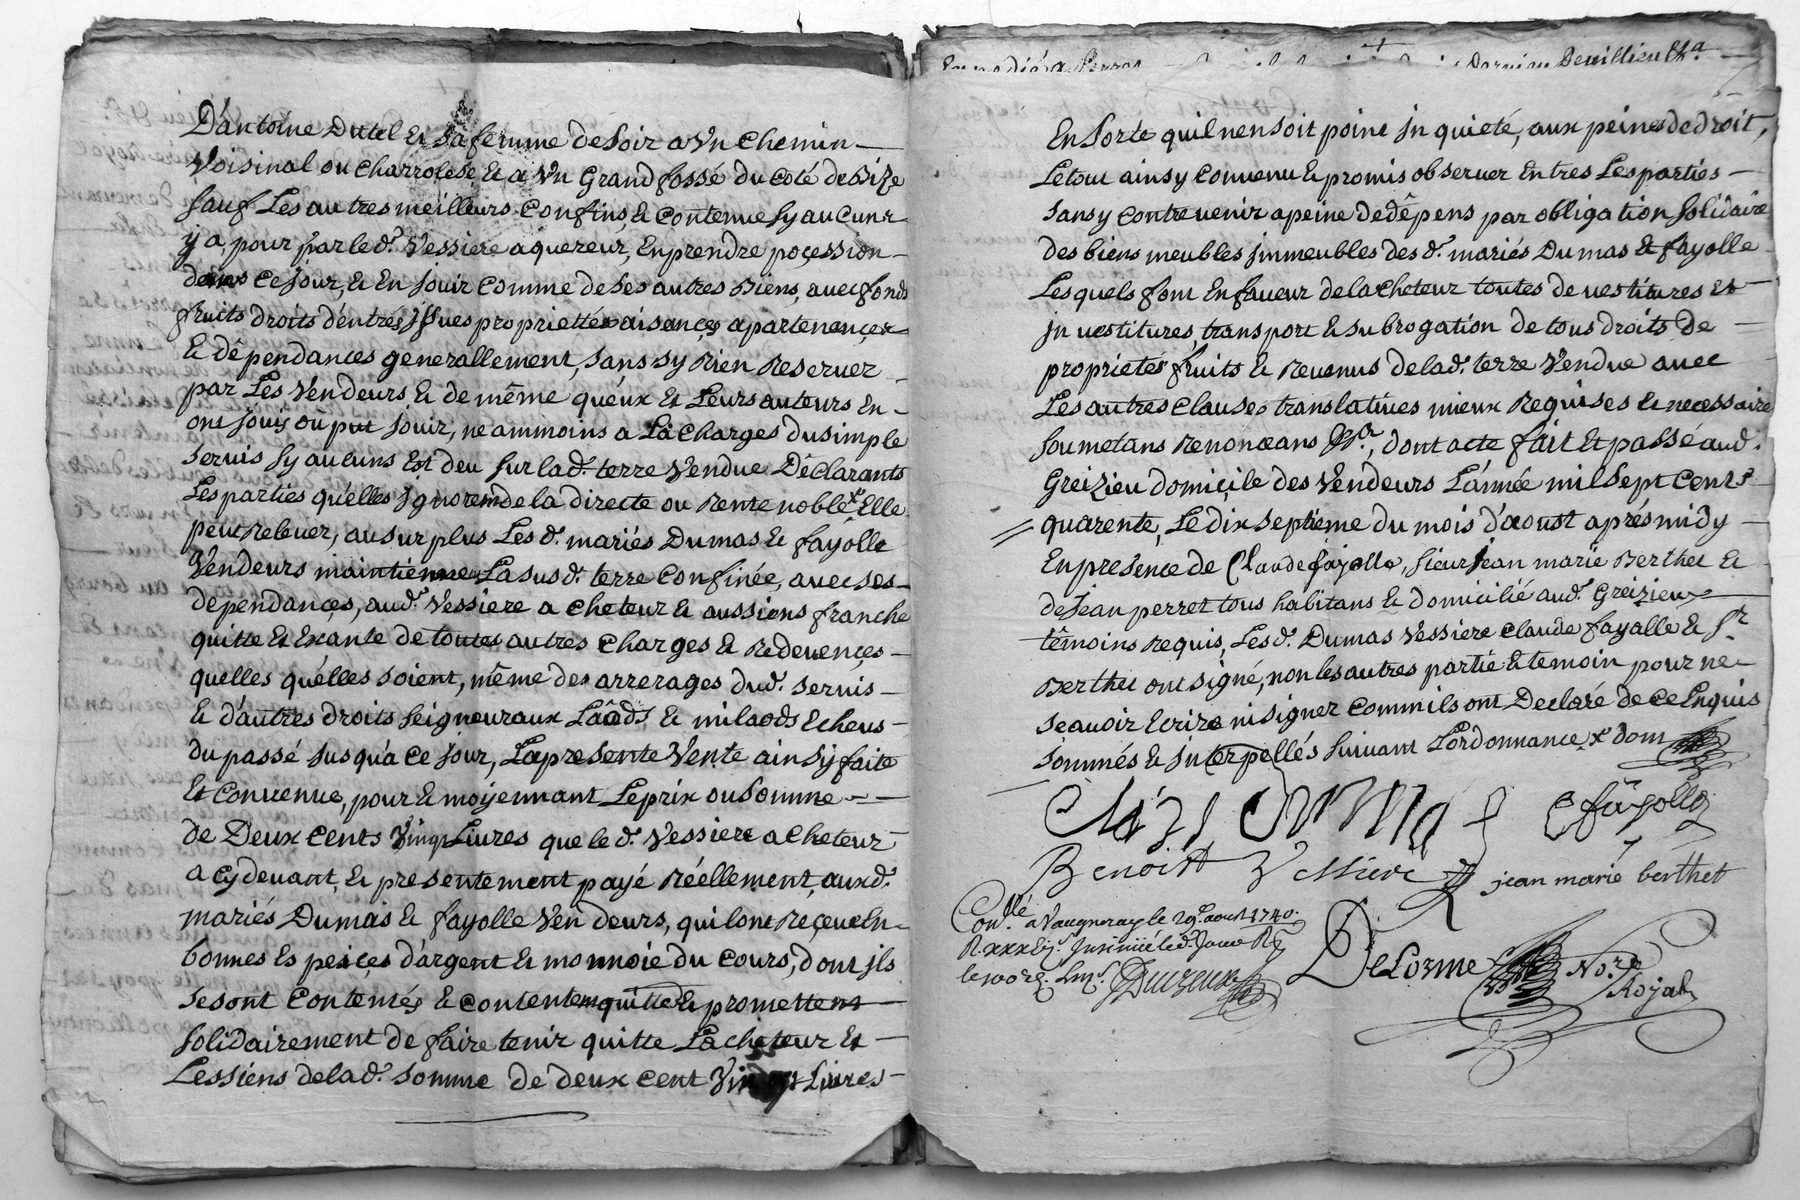 D'antoine Dutel & sa femme de soir a Vn chemin
Voisinal ou charrolese, & a Vn Grand fossé du coté de bize
sauf Les autres meilleurs confins, & contenue sy aucune
y a, pour par led. Vessiere aquereur, En prendre poçession
dans ce Jour, & En Jouir comme de ses autres Biens, avec fonds
fruits droits d'entres, issues propriettés aisançes apartenençes
& dépendances generallement, sans sy Rien Reserver
par Les Vendeurs & de même qu'eux & Leurs auteurs En
ont Jouis ou put Jouir, neammoins a La charges du simple
servis sy aucuns Est deu sur lad. terre Vendue Déclarants
Les parties qu'elles Ignorent de la directe ou Rente noble x Elle
peut Relever, au surplus Les d. mariés Dumas & fayolle
Vendeurs maintienne La susd. terre confinée, avec ses
dépendançes, aud. Vessiere acheteur & aussiens franche
quitte & Exante de toutes autres charges & Redevençes
quelles qu'elles soient, même des arrerages dud. servis
& d'autres droits seigneuraux Laods & milaods Echeus
du passé Jusqu'a ce Jour, La presente Vente ainsy faite
Et convenue, pour & moyennant Le prix ou somme
de Deux cents Vingt Livres que le d. Vessiere acheteur
a cy devant, & presentement payé Réellement, auxd.
mariés Dumas & fayolle Vendeurs, qui l'ont Reçeue En
bonnes Espeiçes d'argent & monnoie du cours, dont jls
se sont contentés & contentent quitte & promettent
solidairement de faire tenir quitte L'acheteur Et
Les siens de lad. somme de deux cent Vingt Livres
En sorte qu'il n'en soit point Jnquieté, aux peines de droit,
Le tout ainsy convenu & promis observer Entres Les parties
sans y contrevenir a peine de dêpens par obligation solidaire
des biens meubles Jmmeubles des d. mariés Dumas & fayolle
Lesquels font En faveur de lacheteur toutes devestitures Et
Jnvestitures, transport & subrogation de tous droits de
proprietés fruits & Revenus de lad. terre Vendue avec
Les autres clauses translatives mieux Requises & necessaire
soumetans Renonceans &c. dont acte fait Et passé aud.
Greizieu domiçile des Vendeurs L'année mil sept cents
quarente, Le dix septieme du mois d'aoust aprés midy
En presençe de Claude fayolle, sieur Jean marie Berthet &
de Jean perret tous habitans & domicilié aud. Greizieu
têmoins Requis, Les d. Dumas Vessiere claude fayalle & sr.
Berthet ont signé, non les autres partie & temoin pour ne
scavoir Ecrire ni signer comm'ils ont Declaré de ce Enquis
sommés & Interpellés suivant L'ordonnance x dom
Cfayolle
Benoist Vessiere
jean marie berthet
Conllé. a Vaugneray le 29e. aout 1740.
DeLorme
No.re
Royal